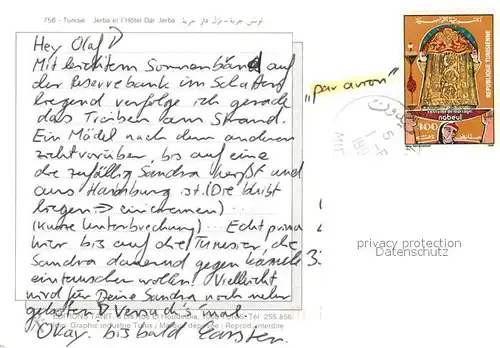 756 - Tunisie Jerba et l'Hôtel Dar Jerba
Hey Olaf!
Mit leichtem Sonnenbrand auf
der Reservebank im Schatten
liegend verfolge ich gerade
das Treiben am Strand.
Ein Mädel nach dem anderen
zieht vorüber, bis auf eine
die zufällig Sandra heißt und
aus Hamburg ist. (Die bleibt
liegen → eincremen) ...
(Kurze Unterbrechung) ... Echt prima
hier bis auf die Tunesier, die
Sandra dauernd gegen Kamele
eintauschen wollen! Vielleicht
wird für Deine Sandra noch mehr
geboten! Versuch's mal
Okay, bis bald Carsten.
EDITIONS TANIT
Tél 255.656
Graphic industrie Tunis / déposée - Reproduction interdite
"par avion"
REPUBLIQUE TUNISIENNE
nabeul
300
privacy protection
Datenschutz